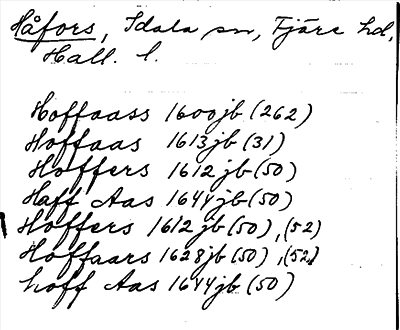 Håfors, Idala sn, Fjäre hd,
Hall. l.
Hoffaass 1600jb (262)
Hoffaas 1613jb (31)
Hoffers 1612jb (50)
Haff Aas 1644jb (50)
Hoffers 1612jb (50), (52)
Hoffaars 1628jb (50), (52)
hoff Aas 1644jb (50)